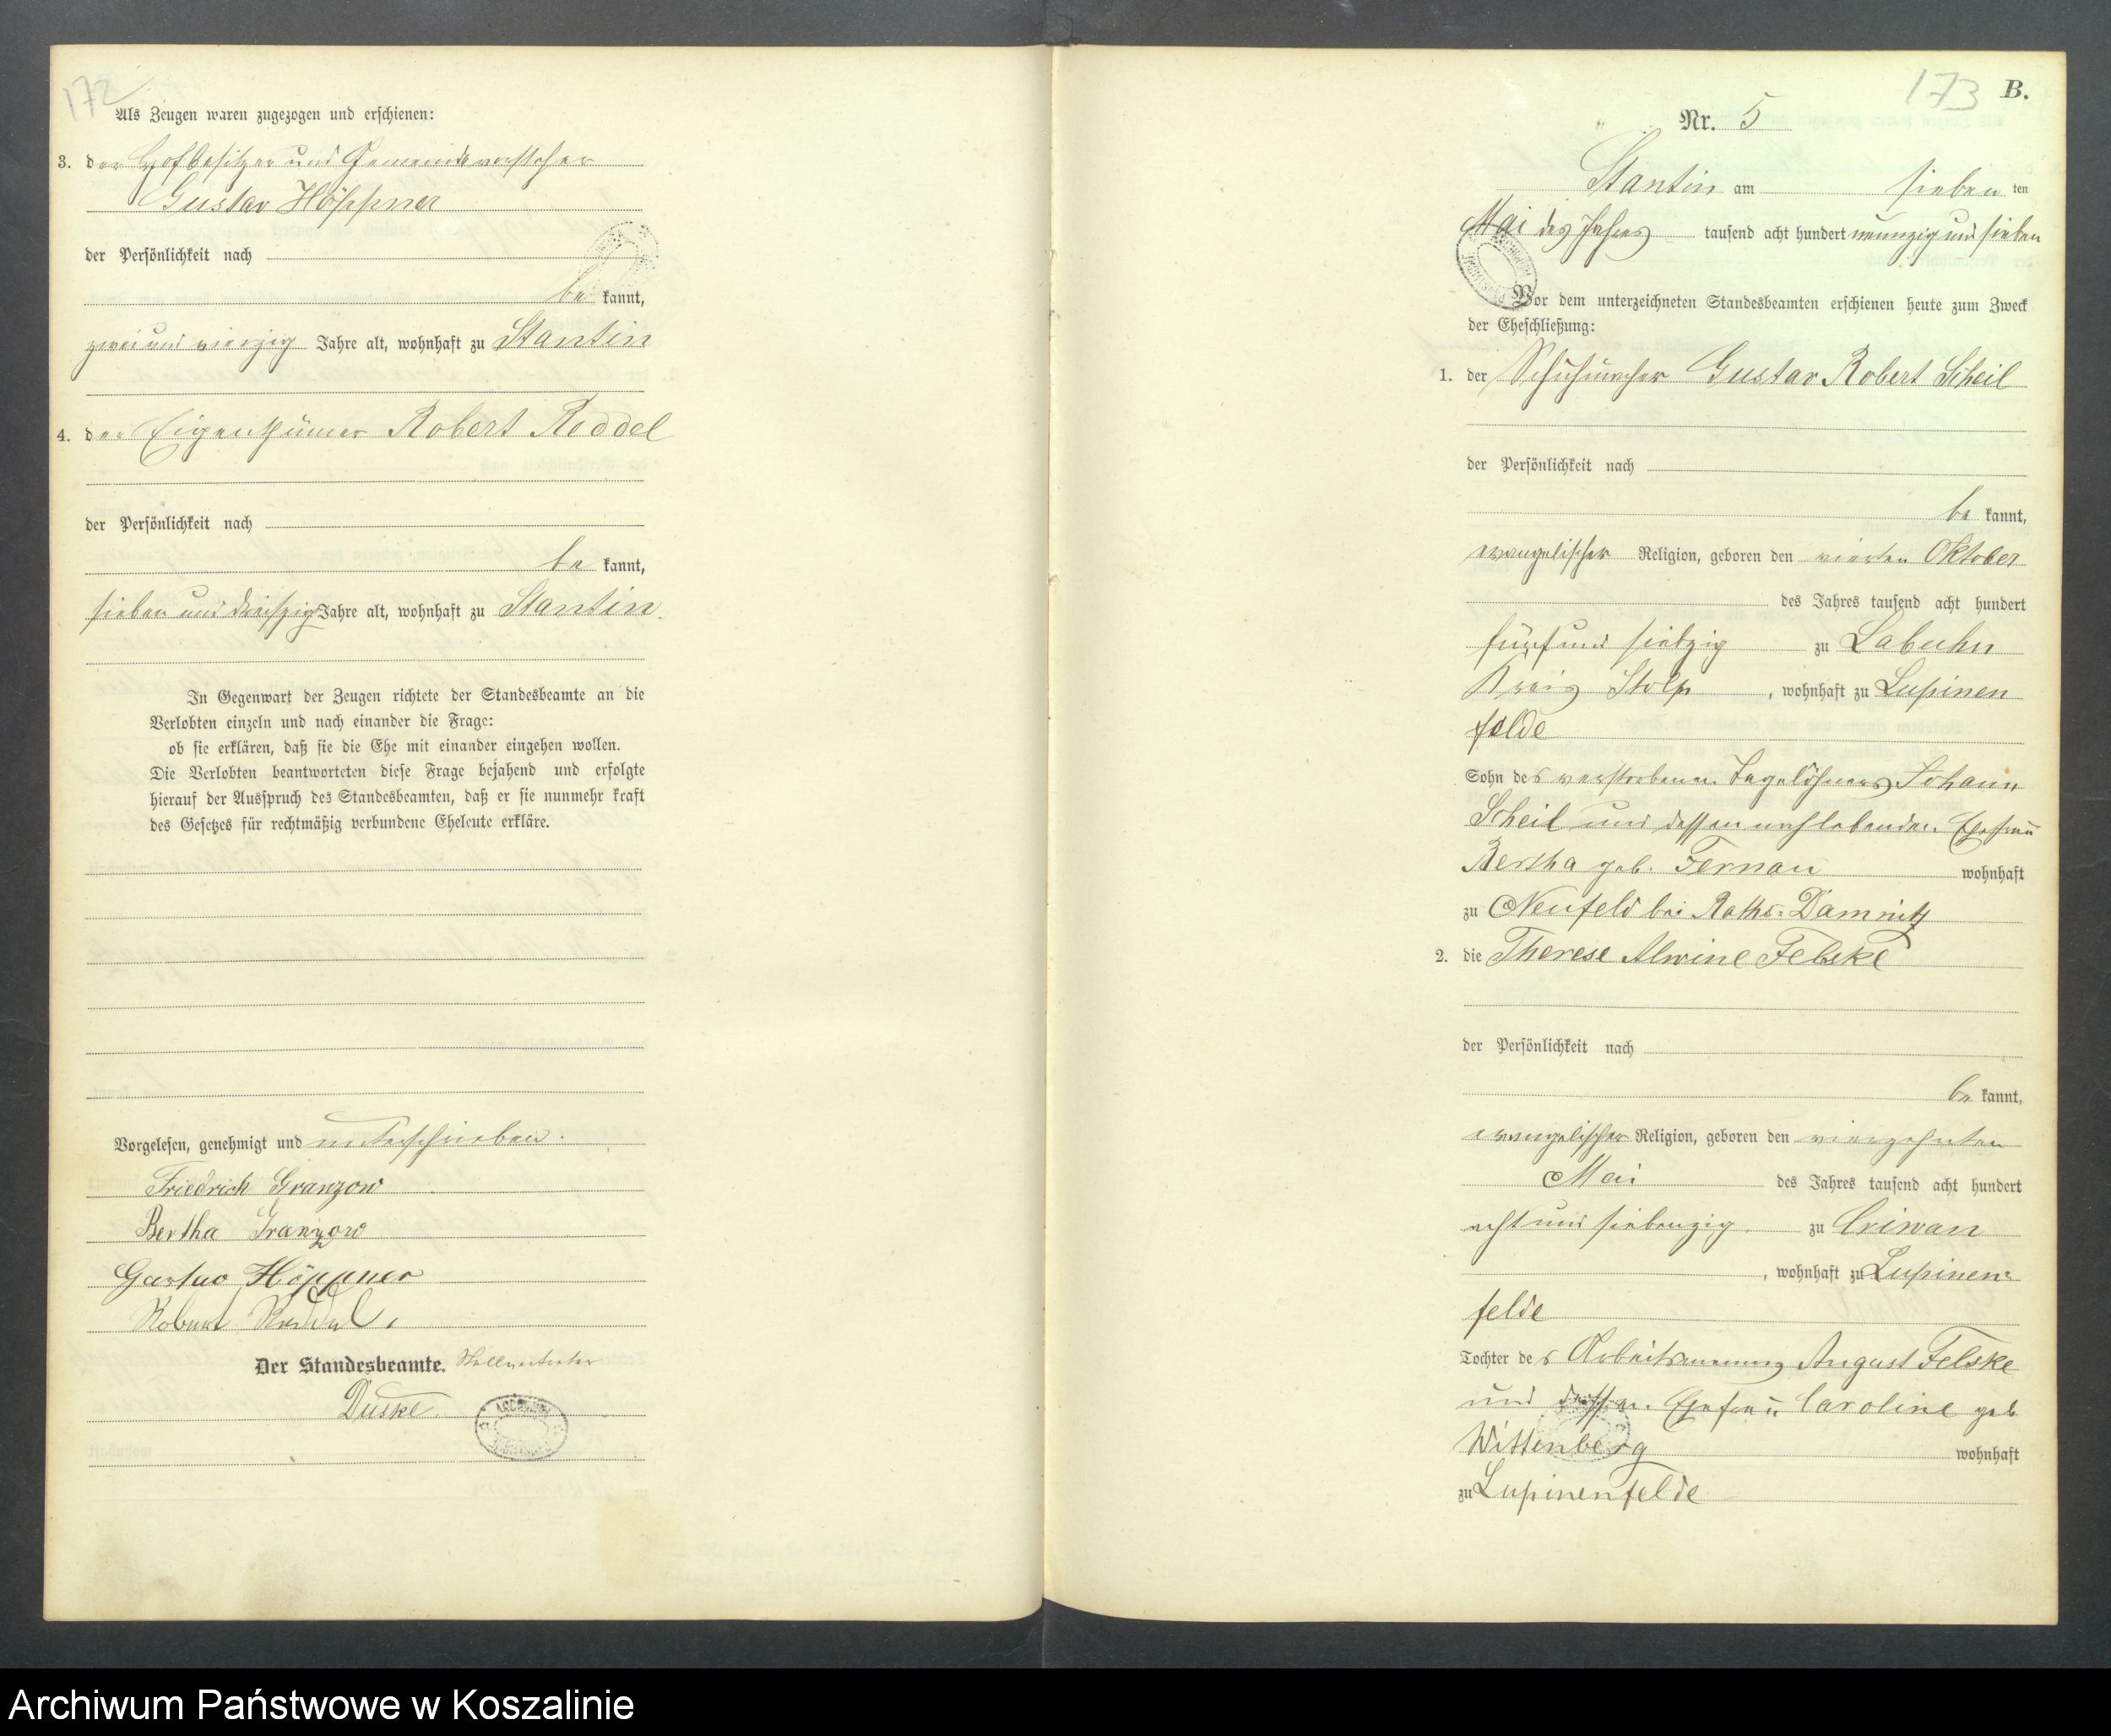 172
Als Zeugen waren zugezogen und erschienen:
3. der Hofbesitzer und Gemeindevorsteher
Gustav Höppner
der Persönlichkeit nach
be kannt,
zwei und vierzig Jahre alt, wohnhaft zu Stantin
4. der Eigenthümer Robert Reddel
der Persönlichkeit nach
be kannt,
sieben und dreißzig Jahre alt, wohnhaft zu Stantin.
In Gegenwart der Zeugen richtete der Standesbeamte an die
Verlobten einzeln und nach einander die Frage:
ob sie erklären, daß sie die Ehe mit einander eingehen wollen.
Die Verlobten beantworteten diese Frage bejahend und erfolgte
hierauf der Ausspruch des Standesbeamten, daß er sie nunmehr kraft
des Gesetzes für rechtmäßig verbundene Eheleute erkläre.
Vorgelesen, genehmigt und unterschrieben.
Friedrich Granzow
Bertha Granzow
Gustav Höppner
Robert Reddel.
Der Standesbeamte. Stellvertreter
Duske.
173 B.
Nr. 5
Stantin am sieben ten
Mai des Jahres tausend acht hundert neunzig und sieben
Vor dem unterzeichneten Standesbeamten erschienen heute zum Zweck
der Eheschließung:
1. der Schuhmacher Gustav Robert Scheil
der Persönlichkeit nach
be kannt,
evangelischer Religion, geboren den vierten Oktober
des Jahres tausend acht hundert
fünf und siebzig zu Labuhn
Kreis Stolp, wohnhaft zu Lupinen
felde
Sohn des verstorbenen Tagelöhners Johann
Scheil und dessen nachlebenden Ehefrau
Bertha geb. Fernau wohnhaft
zu Neufeld bei Raths-Damnitz
2. die Therese Alwine Felske
der Persönlichkeit nach
be kannt,
evangelischer Religion, geboren den vierzehnten
Mai des Jahres tausend acht hundert
acht und siebenzig zu Criwan
, wohnhaft zu Lupinen-
felde
Tochter des Arbeitsmanns August Felske
und dessen Ehefrau Caroline geb
Wittenberg wohnhaft
zu Lupinenfelde
Archiwum Państwowe w Koszalinie